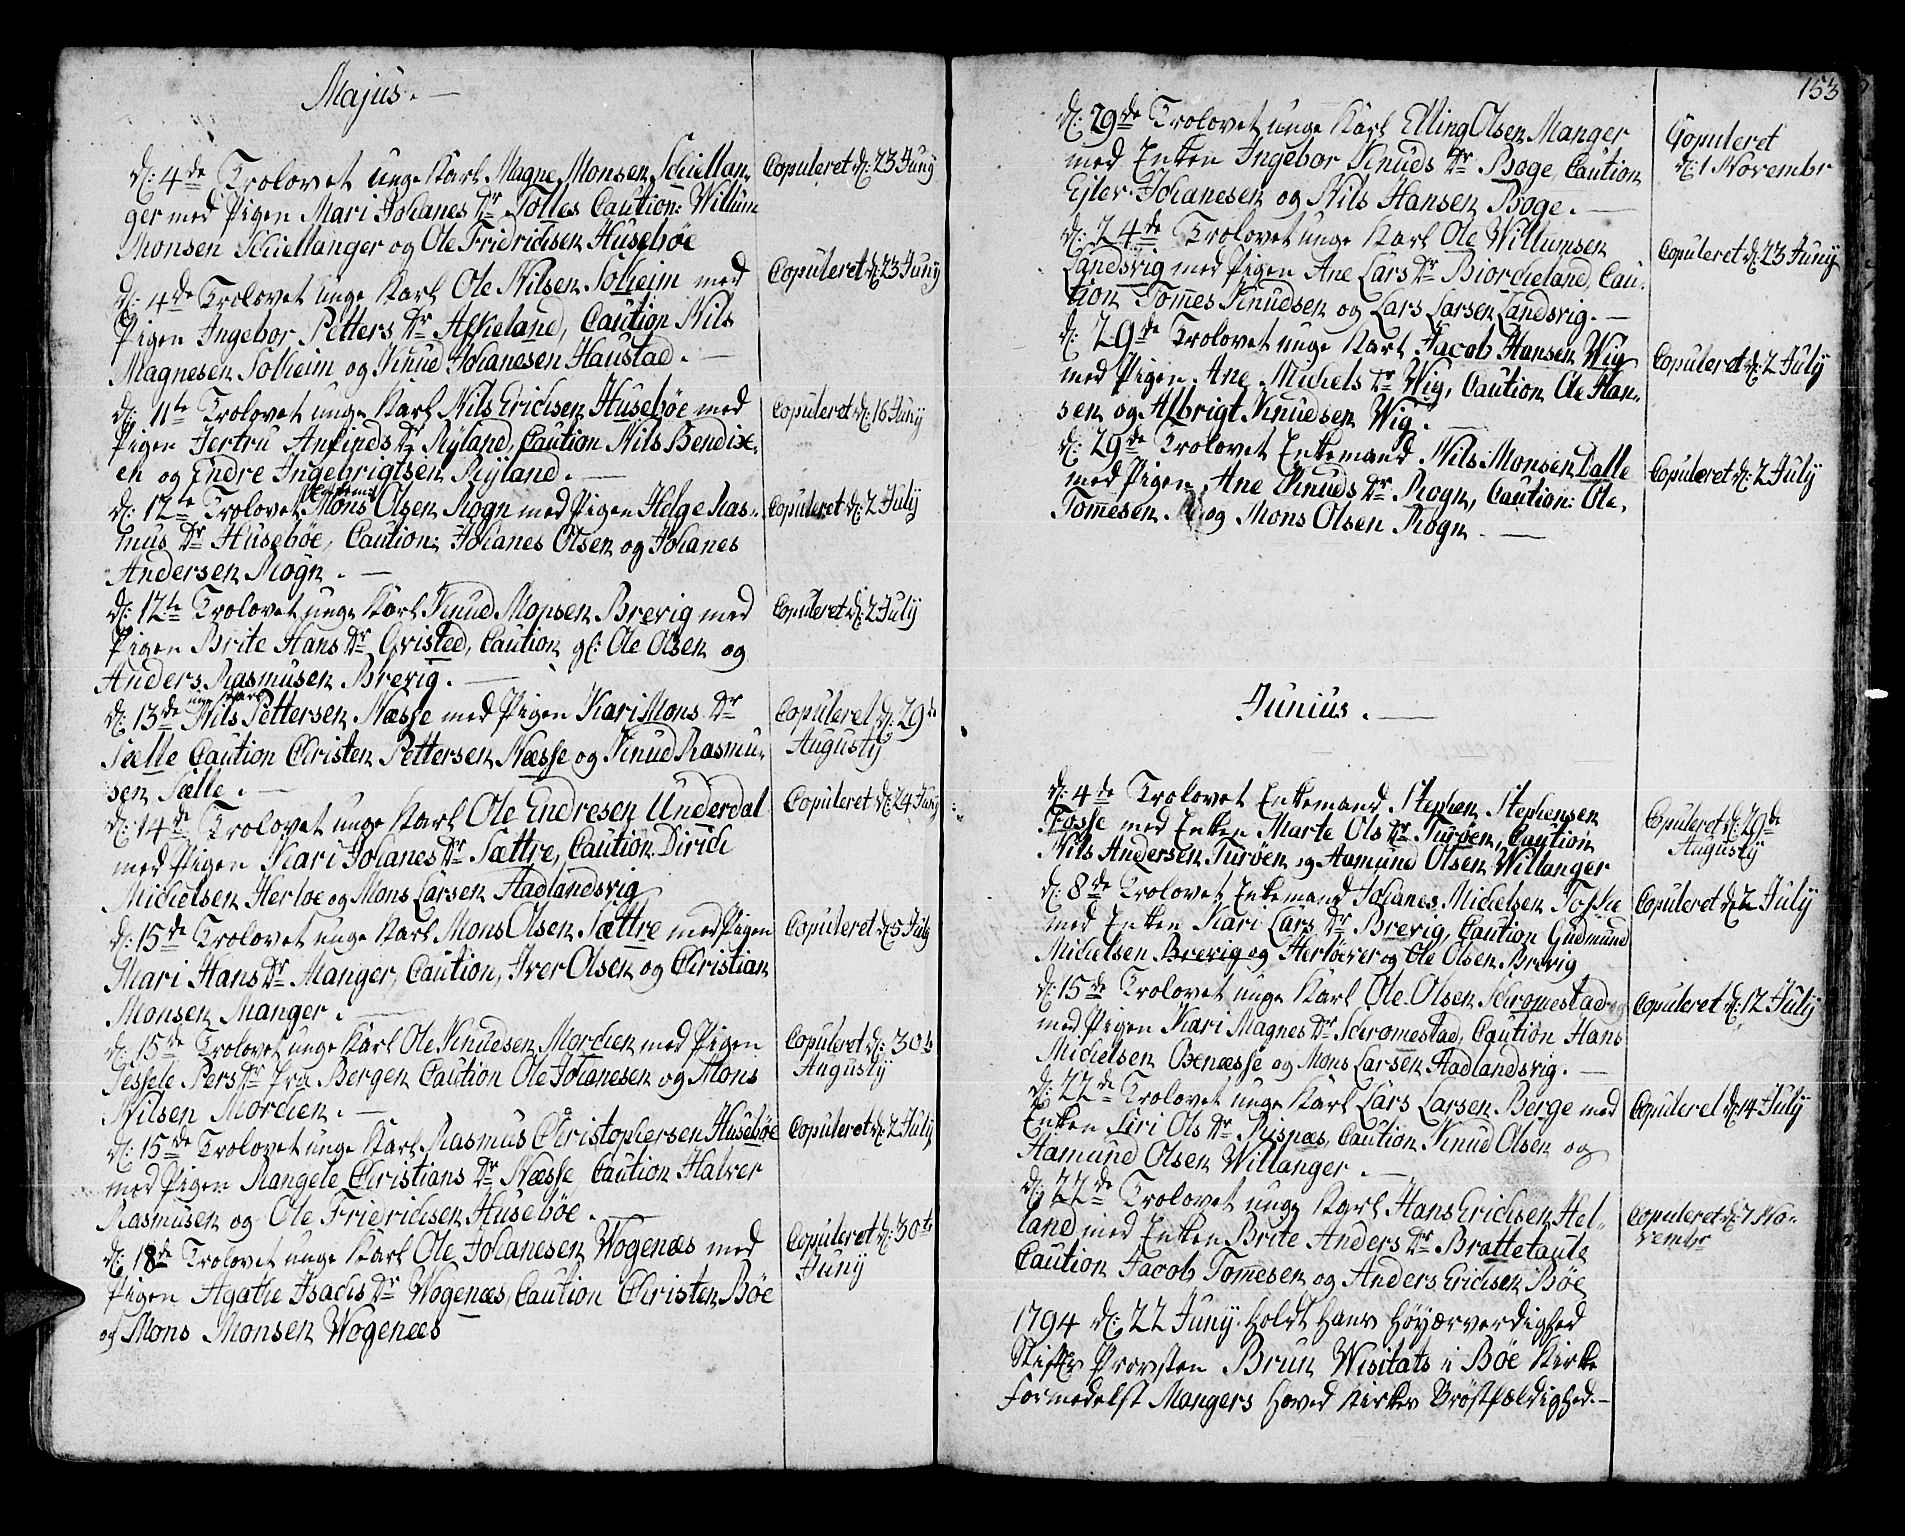 Majus.
d: 4de Trolovet unge Karl Magne Monsen Schiellan-
ger med Pigen Mari Johanes Dr Tolles Caution: Willum
Monsen Schiellanger og Ole Fridrichsen Husebøe
Copuleret d: 23 Juny
d: 4de Trolovet unge Karl Ole Nilsen Solheim med
Pigen Ingebor Petters Dr Askeland, Caution Nils
Magnesen Solheim og Knud Johanesen Haustad.
Copuleret d: 23 Juny
d: 11te Trolovet unge Karl Nils Erichsen Husebøe med
Pigen Jertru Anfinds Dr Ryland, Caution Nils Bendix-
en og Endre Ingebrigtsen Ryland.
Copuleret d: 16 Juny
d: 12te Trolovet Mons Olsen Rogn med Pigen Helge Ras-
mus Dr Husebøe, Caution: Johanes Olsen og Johanes
Andersen Rogn.
Copuleret d: 2 July
d: 12te Trolovet unge Karl Knud Monsen Brevig med
Pigen Brite Hans Dr Gristed, Caution gl: Ole Olsen og
Anders Rasmusen Brevig.
Copuleret d: 2 July
unge Karl
d: 13de Nils Pettersen Næsse med Pigen Kari Mons Dr
Sælle Caution Christen Pettersen Næsse og Knud Rasmu-
sen Sælle.
Copuleret d: 29de
Augusty
d: 14de Trolovet unge Karl Ole Endresen Underdal
med Pigen Kari Johanes Dr Sættre, Caution Dirich
Michelsen Herloe og Mons Larsen Aadlandsvig
Copuleret d: 24 Juny
d: 15de Trolovet unge Karl Mons Olsen Sættre med Pigen
Mari Hans Dr Manger, Caution, Iver Olsen og Christian
Monsen Manger.
Copuleret d: 5 July
d: 15de Trolovet unge Karl Ole Knudsen Morchen med Pigen
Sessele Pers Dr fra Bergen Caution Ole Johanesen og Mons
Nilsen Morchen.
Copuleret d: 30te
Augusty
d: 15de Trolovet unge Karl Rasmus Christophersen Husebøe
med Pigen Rangele Christians Dr Næsse, Caution Halver
Rasmusen og Ole Fridrichsen Husebøe.
Copuleret d: 2 July
d: 18de Trolovet unge Karl Ole Johanesen Wogenæs med
Pigen Agathe Isachs Dr Wogenæs, Caution Christen Bøe
og Mons Monsen Wogenæs
Copuleret d: 30te
Juny
153
d: 29de Trolovet unge Karl Elling Olsen Manger
med Enken Ingebor Knuds Dr Boge, Caution
Ejler Johanesen og Nils Hansen Boge.
Copuleret
d: 1 Novembr
d: 24de Trolovet unge Karl Ole Willumsen
Landsvig med Pigen Ane Lars Dr Biorcheland, Cau-
tion Tomes Knudsen og Lars Larsen Landsvig.
Copuleret d: 23 Juny
d: 29de Trolovet unge Karl Jacob Hansen Wig
med Pigen Ane Michels Dr Wig, Caution Ole Han-
sen og Albrigt Knudsen Wig.
Copuleret d: 2 July
d: 29de Trolovet Enkemand Nils Monsen Dalle
med Pigen Ane Knuds Dr Rogn, Caution: Ole
Tomesen og Mons Olsen Rogn.
Copuleret d: 2 July
Junius.
d: 4de Trolovet Enkemand Stephen Stephensen
Fosse med Enken Marte Ols Dr Turøen, Caution
Nils Andersen Turøen og Aamund Olsen Willanger
Copuleret d: 29de
Augusty
d: 8de Trolovet Enkemand Johanes Michelsen Toske
med Enken Kari Lars Dr Brevig, Caution Gudmund
Michelsen Brevig og Herløever og Ole Olsen Brevig
Copuleret d: 2 July
d: 15de Trolovet unge Karl Ole Olsen Schromestad
med Pigen Kari Magnes Dr Schromestad, Caution Hans
Michelsen Oxnæsse og Mons Larsen Aadlandsvig.
Copuleret d: 12 July
d: 22de Trolovet unge Karl Lars Larsen Berge med
Enken Siri Ols Dr Risnæs, Caution Knud Olsen og
Aamund Olsen Willanger.
Copuleret d: 14 July
d: 22de Trolovet unge Karl Hans Erichsen Hel-
land med Enken Brite Anders Dr Brattetaule
Caution Jacob Tomesen og Anders Erichsen Bøe
Copuleret d: 7 No-
vembr
1794 d: 22 Juny holdt hans Høyærverdighed
Stifts Provsten Brun Wisitats i Bøe Kirke
formedelst Mangers Hoved Kirkes Brøstfældighed.